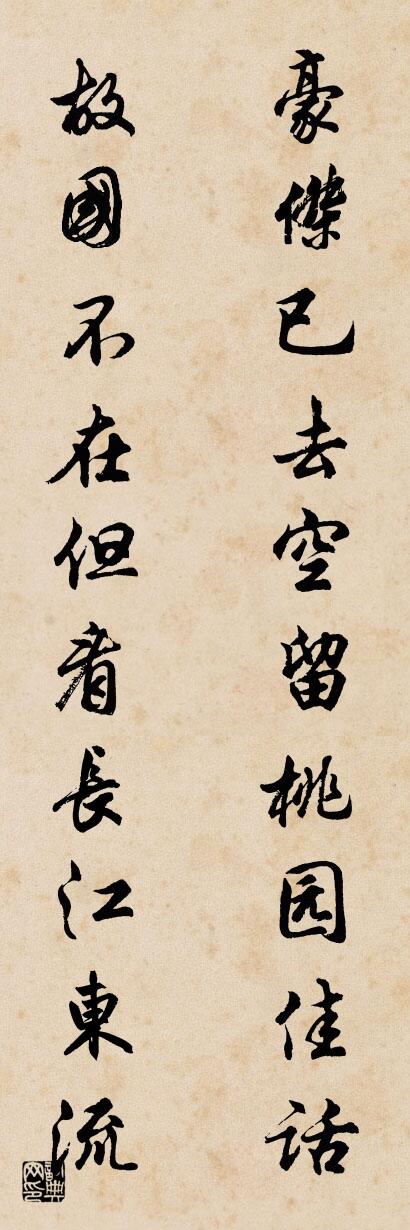 豪傑已去空留桃园佳话
故國不在但看長江東流